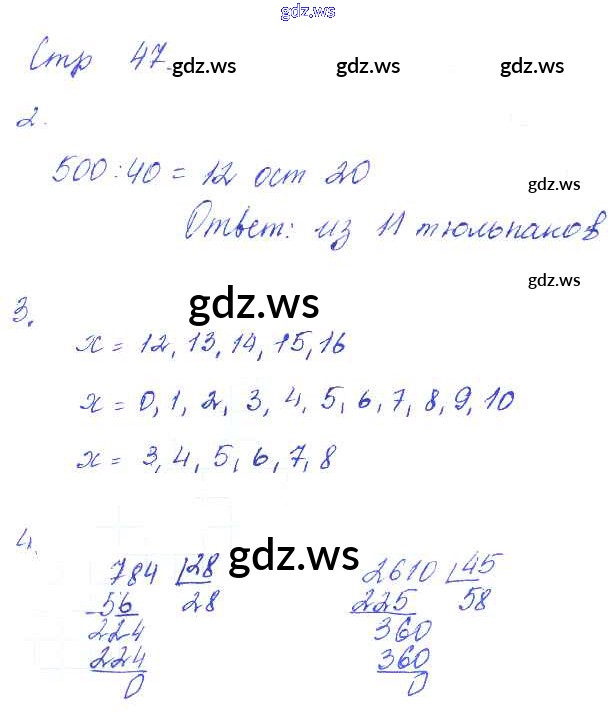 gdz.ws
Стр 47.
gdz.ws gdz.ws gdz.ws
2.
500:40 = 12 ост 20
gdz.ws
Ответ: из 11 тюльпанов
gdz.ws gdz.ws
3.
x = 12, 13, 14, 15, 16
x = 0, 1, 2, 3, 4, 5, 6, 7, 8, 9, 10
x = 3, 4, 5, 6, 7, 8
4.
gdz.ws
784 28 2610 45
-56 28 225 58
224 360
224 360
0 0